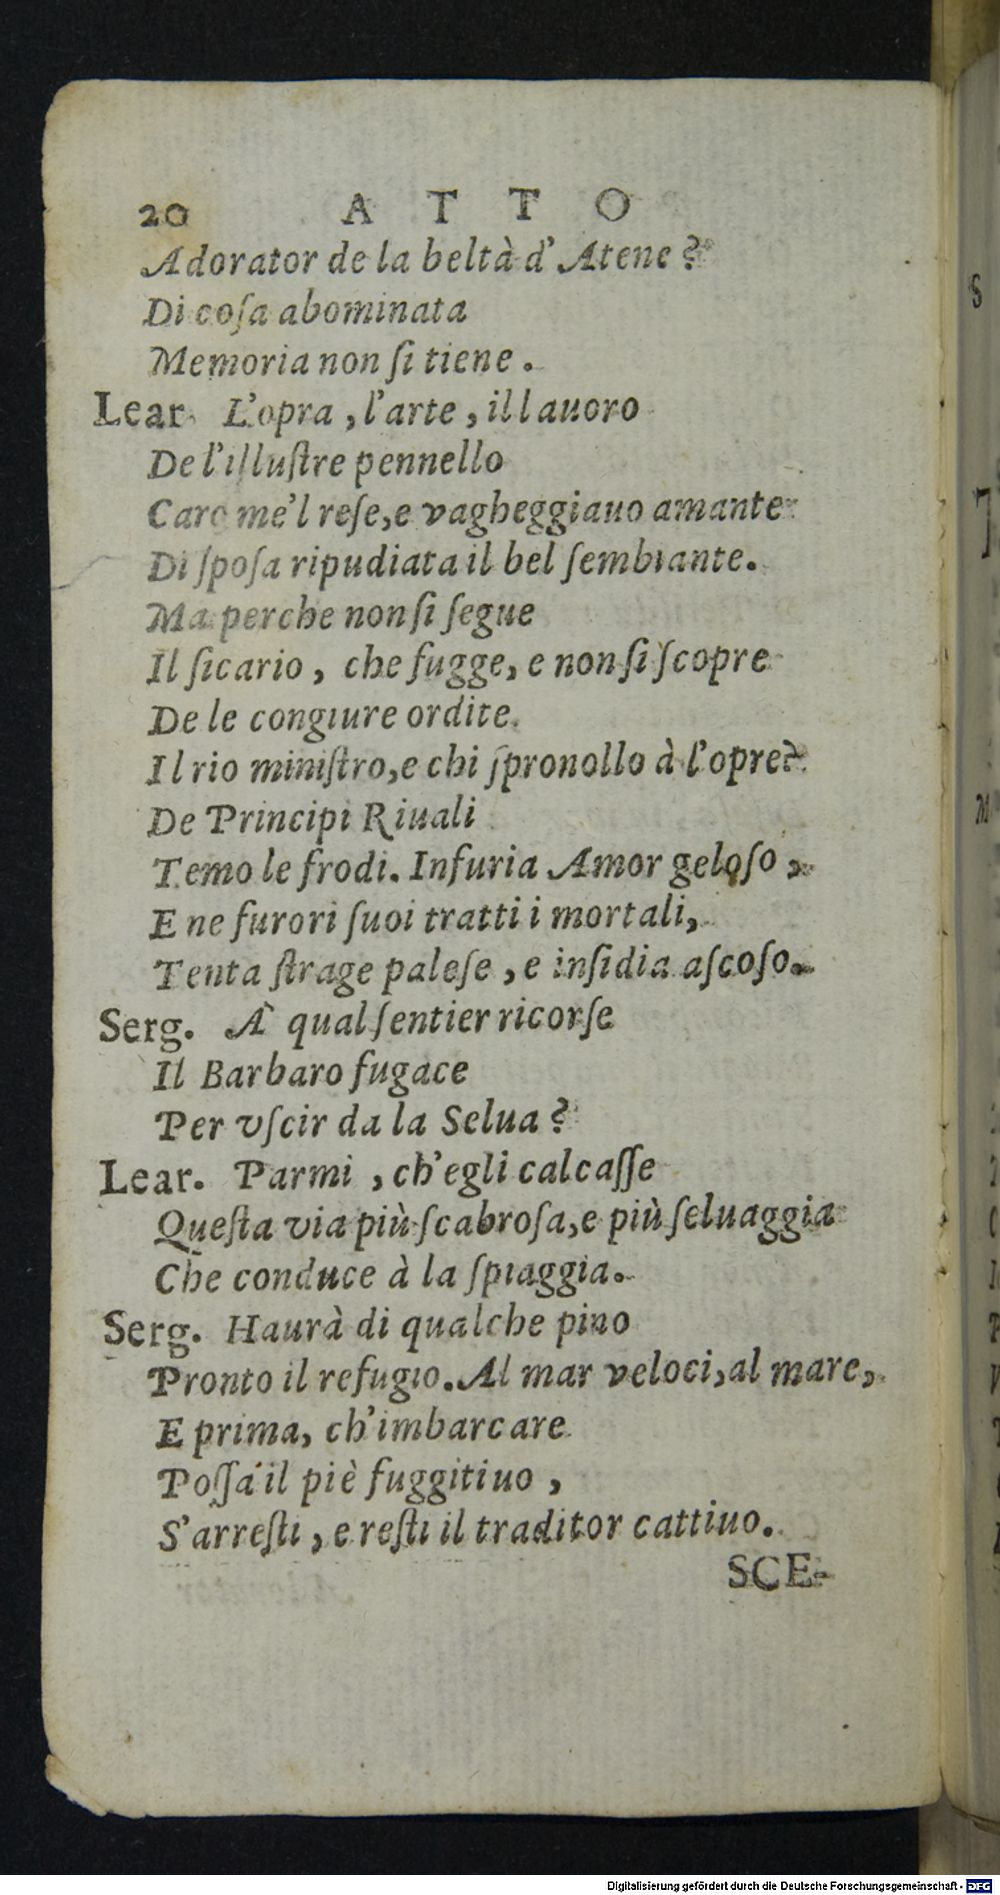 20 ATTO
Adorator de la beltà d'Atene?
Di coſa abominata
Memoria non ſi tiene.
Lear. L'opra, l'arte, il lauoro
De l'illuſtre pennello
Caro me'l reſe, e vagheggiauo amante
Di ſpoſa ripudiata il bel ſembiante.
Ma perche non ſi ſegue
Il ſicario, che fugge, e non ſi ſcopre
De le congiure ordite
Il rio miniſtro, e chi ſpronollo à l'opre?
De Principi Riuali
Temo le frodi. Infuria Amor geloſo,
E ne furori ſuoi tratti i mortali,
Tenta ſtrage paleſe, e inſidia aſcoſo.
Serg. A qual ſentier ricorſe
Il Barbaro fugace
Per vſcir da la Selua?
Lear. Parmi, ch'egli calcaſſe
Queſta via più ſcabroſa, e più ſeluaggia
Che conduce à la ſpiaggia.
Serg. Haurà di qualche pino
Pronto il refugio. Al mar veloci, al mare,
E prima, ch'imbarcare
Poſſa il piè fuggitiuo,
S'arreſti, e reſti il traditor cattiuo.
SCE-
Digitalisierung gefördert durch die Deutsche Forschungsgemeinschaft - DFG